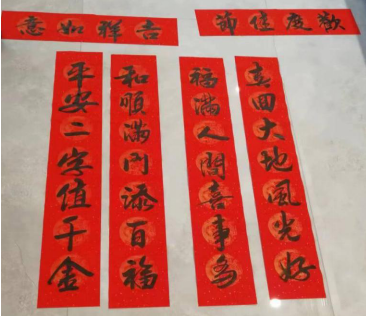 歡度佳節
吉祥如意
春回大地風光好
福滿人間喜事多
和順滿門添百福
平安二字值千金